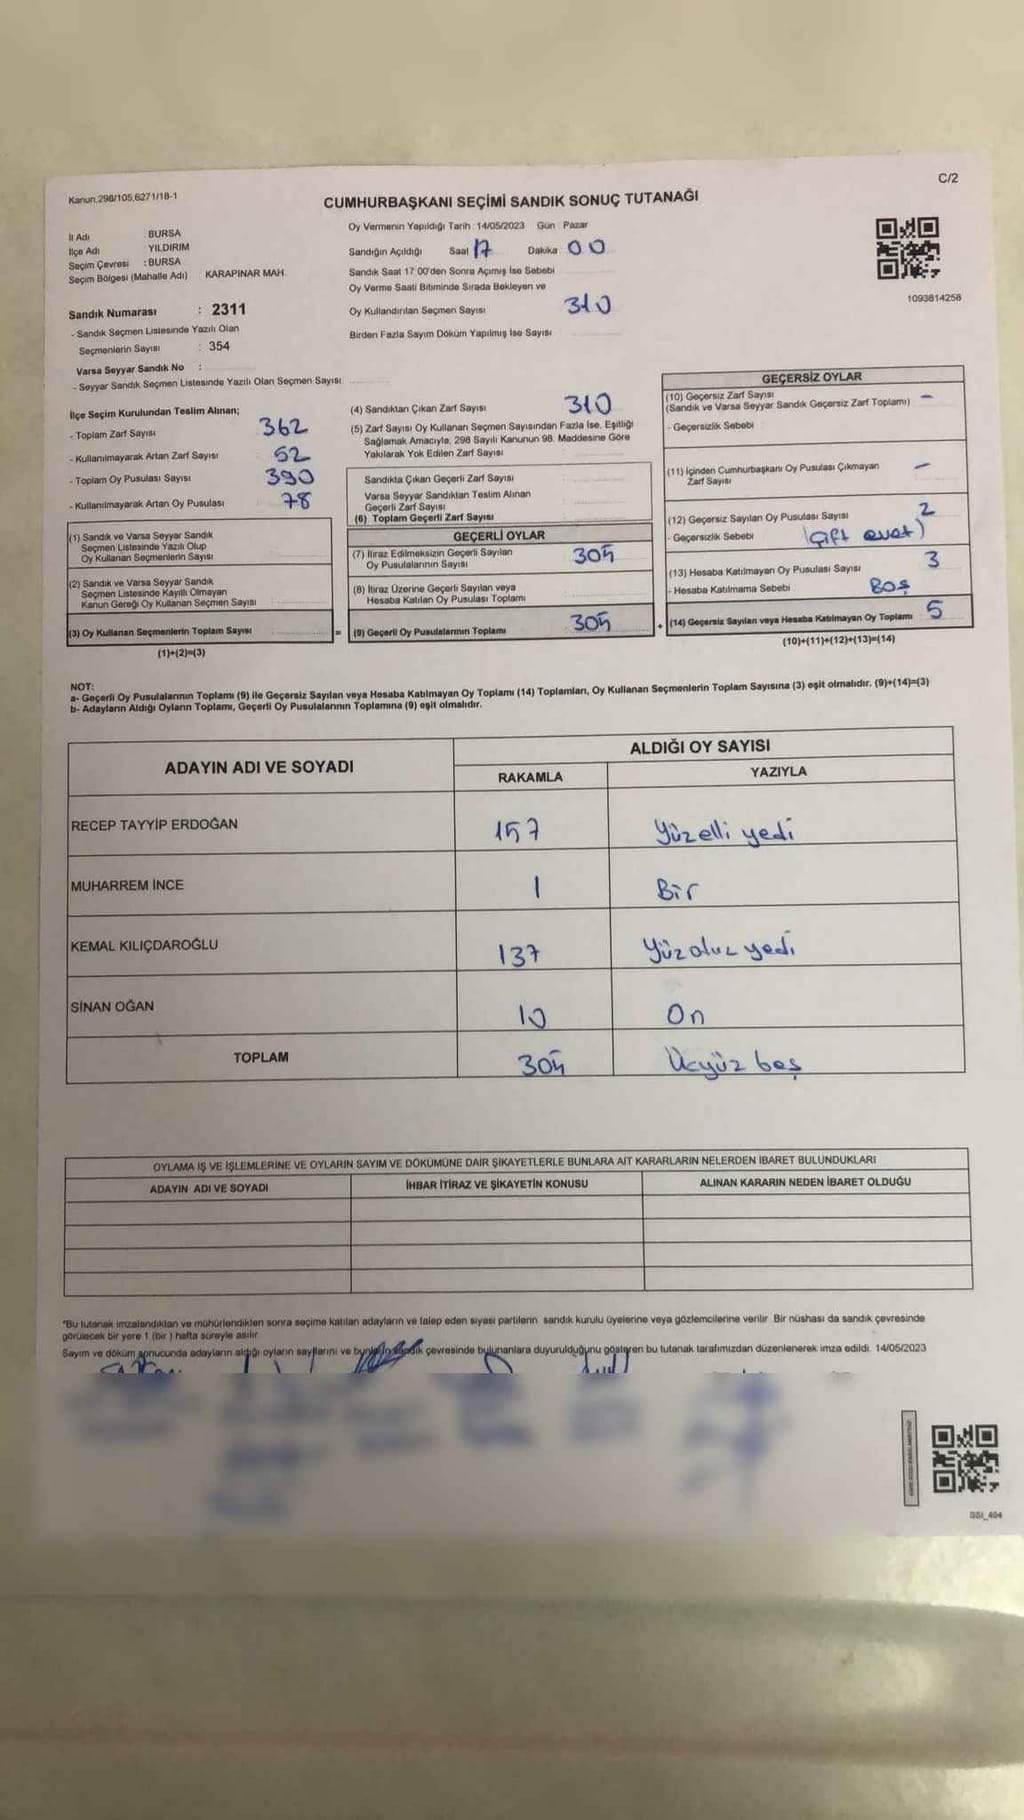 C/2
Kanun.298/105,6271/18-1
CUMHURBAŞKANI SEÇİMİ SANDIK SONUÇ TUTANAĞI
İl Adı : BURSA
İlçe Adı YILDIRIM
Seçim Çevresi : BURSA
Seçim Bölgesi (Mahalle Adı) KARAPINAR MAH.
Sandık Numarası : 2311
- Sandık Seçmen Listesinde Yazılı Olan
Seçmenlerin Sayısı : 354
Varsa Seyyar Sandık No :
- Seyyar Sandık Seçmen Listesinde Yazılı Olan Seçmen Sayısı:
Oy Vermenin Yapıldığı Tarih : 14/05/2023 Gün : Pazar
Sandığın Açıldığı Saat 17 Dakika 00
Sandık Saat 17:00'den Sonra Açımış İse Sebebi
Oy Verme Saati Bitiminde Sırada Bekleyen ve
Oy Kullandırılan Seçmen Sayısı 310
Birden Fazla Sayım Döküm Yapılmış İse Sayısı
1093814258
İlçe Seçim Kurulundan Teslim Alınan;
- Toplam Zarf Sayısı 362
- Kullanılmayarak Artan Zarf Sayısı 52
- Toplam Oy Pusulası Sayısı 390
- Kullanılmayarak Artan Oy Pusulası 78
(1) Sandık ve Varsa Seyyar Sandık
Seçmen Listesinde Yazılı Olup
Oy Kullanan Seçmenlerin Sayısı
(2) Sandık ve Varsa Seyyar Sandık
Seçmen Listesinde Kayıtlı Olmayan
Kanun Gereği Oy Kullanan Seçmen Sayısı
(3) Oy Kullanan Seçmenlerin Toplam Sayısı =
(1)+(2)=(3)
(4) Sandıktan Çıkan Zarf Sayısı 310
(5) Zarf Sayısı Oy Kullanan Seçmen Sayısından Fazla İse, Eşitliği
Sağlamak Amacıyla, 298 Sayılı Kanunun 98. Maddesine Göre
Yakılarak Yok Edilen Zarf Sayısı
Sandıkta Çıkan Geçerli Zarf Sayısı
Varsa Seyyar Sandıktan Teslim Alınan
Geçerli Zarf Sayısı
(6) Toplam Geçerli Zarf Sayısı
GEÇERLİ OYLAR
(7) İtiraz Edilmeksizin Geçerli Sayılan
Oy Pusulalarının Sayısı 305
(8) İtiraz Üzerine Geçerli Sayılan veya
Hesaba Katılan Oy Pusulası Toplamı
(9) Geçerli Oy Pusulalarının Toplamı 305 +
GEÇERSİZ OYLAR
(10) Geçersiz Zarf Sayısı -
(Sandık ve Varsa Seyyar Sandık Geçersiz Zarf Toplamı)
- Geçersizlik Sebebi
(11) İçinden Cumhurbaşkanı Oy Pusulası Çıkmayan
Zarf Sayısı -
(12) Geçersiz Sayılan Oy Pusulası Sayısı 2
- Geçersizlik Sebebi (Çift evet)
(13) Hesaba Katılmayan Oy Pusulası Sayısı 3
- Hesaba Katılmama Sebebi Boş
(14) Geçersiz Sayılan veya Hesaba Katılmayan Oy Toplamı 5
(10)+(11)+(12)+(13)=(14)
NOT:
a- Geçerli Oy Pusulalarının Toplamı (9) ile Geçersiz Sayılan veya Hesaba Katılmayan Oy Toplamı (14) Toplamları, Oy Kullanan Seçmenlerin Toplam Sayısına (3) eşit olmalıdır. (9)+(14)=(3)
b- Adayların Aldığı Oyların Toplamı, Geçerli Oy Pusulalarının Toplamına (9) eşit olmalıdır.
ADAYIN ADI VE SOYADI ALDIĞI OY SAYISI
RAKAMLA YAZIYLA
RECEP TAYYİP ERDOĞAN 157 Yüzelli yedi
MUHARREM İNCE 1 Bir
KEMAL KILIÇDAROĞLU 137 Yüzotuz yedi
SİNAN OĞAN 10 On
TOPLAM 305 Üçyüz beş
OYLAMA İŞ VE İŞLEMLERİNE VE OYLARIN SAYIM VE DÖKÜMÜNE DAİR ŞİKAYETLERLE BUNLARA AİT KARARLARIN NELERDEN İBARET BULUNDUKLARI
ADAYIN ADI VE SOYADI İHBAR İTİRAZ VE ŞİKAYETİN KONUSU ALINAN KARARIN NEDEN İBARET OLDUĞU
"Bu tutanak imzalandıktan ve mühürlendikten sonra seçime katılan adayların ve talep eden siyasi partilerin sandık kurulu üyelerine veya gözlemcilerine verilir. Bir nüshası da sandık çevresinde
görülecek bir yere 1 (bir ) hafta süreyle asılır.
Sayım ve döküm sonucunda adayların aldığı oyların sayılarını ve bunların sandık çevresinde bulunanlara duyurulduğunu gösteren bu tutanak tarafımızdan düzenlenerek imza edildi. 14/05/2023